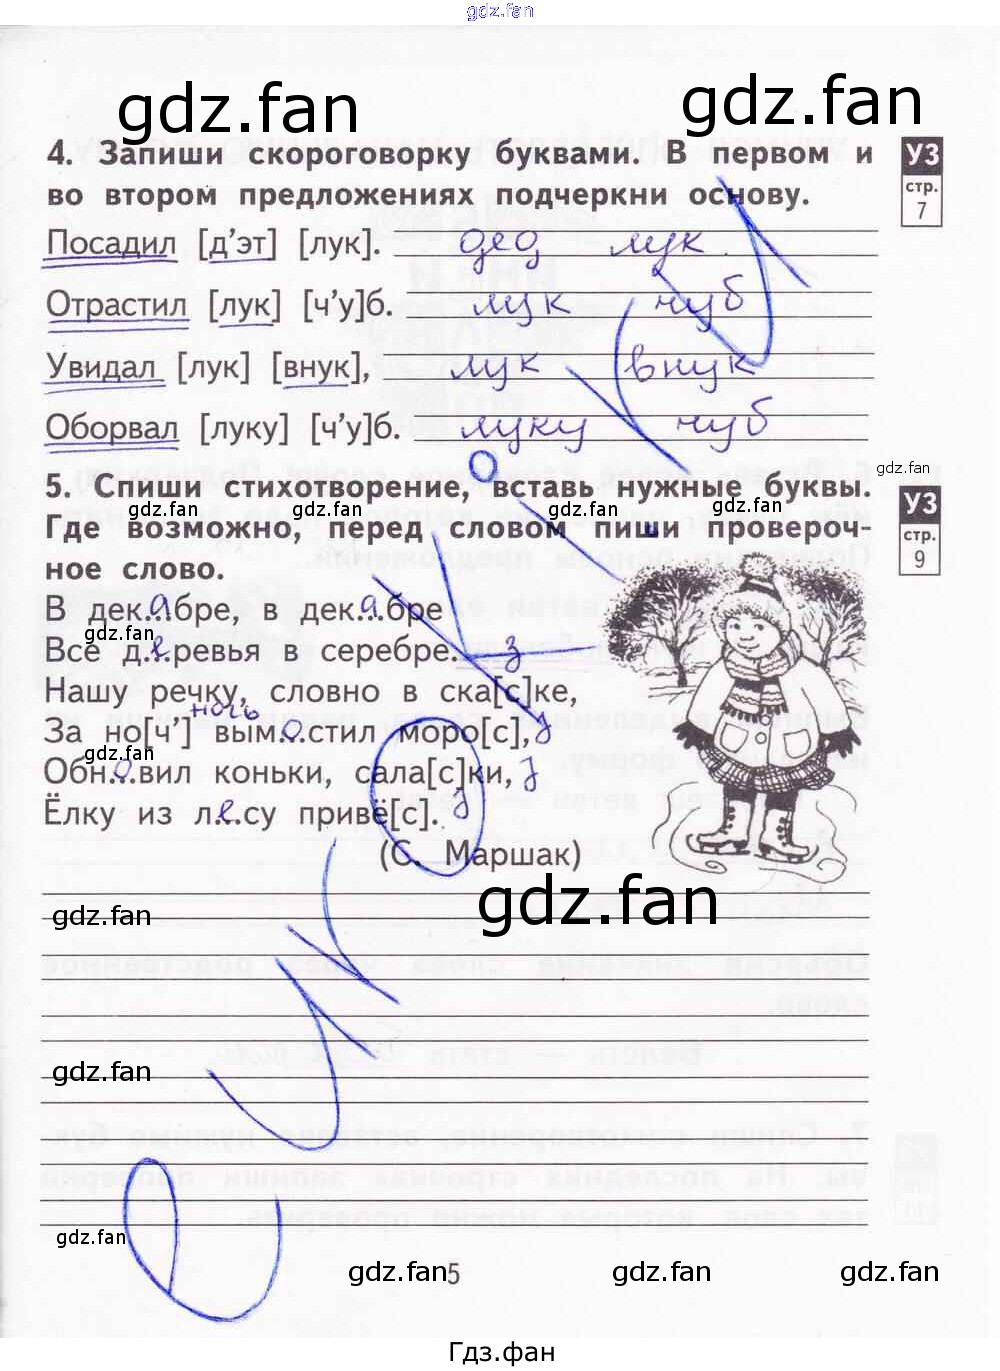 gdz.fan
gdz.fan gdz.fan
4. Запиши скороговорку буквами. В первом и
во втором предложениях подчеркни основу.
УЗ
стр.
7
Посадил [д’эт] [лук]. дед лук.
Отрастил [лук] [ч’у]б. лук чуб
Увидал [лук] [внук], лук внук
Оборвал [луку] [ч’у]б. луку чуб
gdz.fan
5. Спиши стихотворение, вставь нужные буквы.
gdz.fan gdz.fan gdz.fan gdz.fan
Где возможно, перед словом пиши провероч-
ное слово.
УЗ
стр.
9
В дек.а.бре, в дек.а.бре
gdz.fan
Все д.е.ревья в серебре. з
Нашу речку, словно в ска[с]ке,
ночь
За но[ч’] вым.о.стил моро[с], з
gdz.fan
Обн.о.вил коньки, сала[с]ки, з
Ёлку из л.е.су привё[с]. з
(С. Маршак)
gdz.fan gdz.fan
gdz.fan
gdz.fan
gdz.fan 5 gdz.fan gdz.fan
Гдз.фан